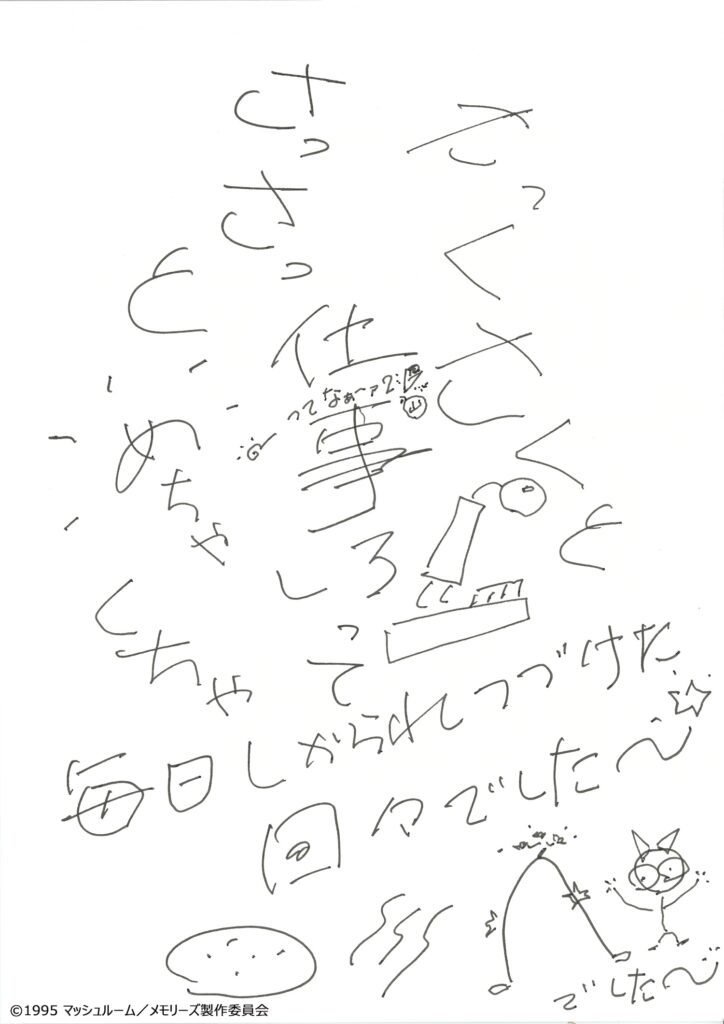 さっくさくと
さっさっと
仕事しろって
ってなぁーァ
めちゃくちゃ
毎日しかられしつづけた
日々でした〜
でした〜
©1995 マッシュルーム／メモリーズ製作委員会